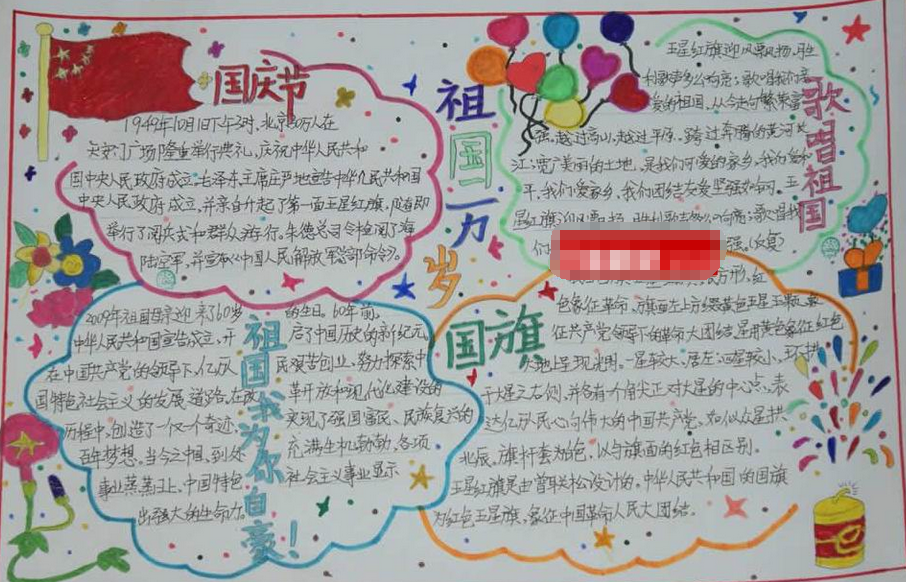 国庆节
1949年10月1日下午3时,北京30万人在
天安门广场隆重举行典礼,庆祝中华人民共和
国中央人民政府成立。毛泽东主席庄严地宣告中华人民共和国
中央人民政府成立,并亲自升起了第一面五星红旗,随即
举行了阅兵式和群众游行。朱德总司令检阅了海
陆空军,并宣布《中国人民解放军总部命令》。
祖国万岁
歌唱祖国
五星红旗迎风飘扬,胜
利歌声多么响亮;歌唱我们亲
爱的祖国,从今走向繁荣富
强。越过高山,越过平原,跨过奔腾的黄河长
江;宽广美丽的土地,是我们可爱的家乡,我们爱和
平,我们爱家乡,我们团结友爱坚强如钢。五
星红旗迎风飘扬,胜利歌声多么响亮;歌唱我
们
强。(反复)
祖国我为你自豪!
2009年祖国母亲迎来了60岁的生日。60年前,
中华人民共和国宣告成立,开启了中国历史的新纪元,
在中国共产党的领导下,亿万民艰苦创业,努力探索中
国特色社会主义的发展道路,在改革开放和现代化建设的
历程中,创造了一个又一个奇迹,实现了强国富民、民族复兴的
百年梦想。当今之中国,到处充满生机勃勃,各项
事业蒸蒸日上,中国特色社会主义事业显示
出强大的生命力。
国旗
方形,红
色象征革命,旗面左上方缀黄色五星五颗,象
征共产党领导下的革命大团结,星用黄色象征红色
大地上呈现光明。一星较大,居左;四星较小,环拱
于大星之右侧,并各有一个角尖正对大星的中心点,表
达亿万人民心向伟大的中国共产党,如似众星拱
北辰。旗杆套为白色,以与旗面的红色相区别。
五星红旗是由曾联松设计的。中华人民共和国的国旗
为红色五星旗,象征中国革命人民大团结。